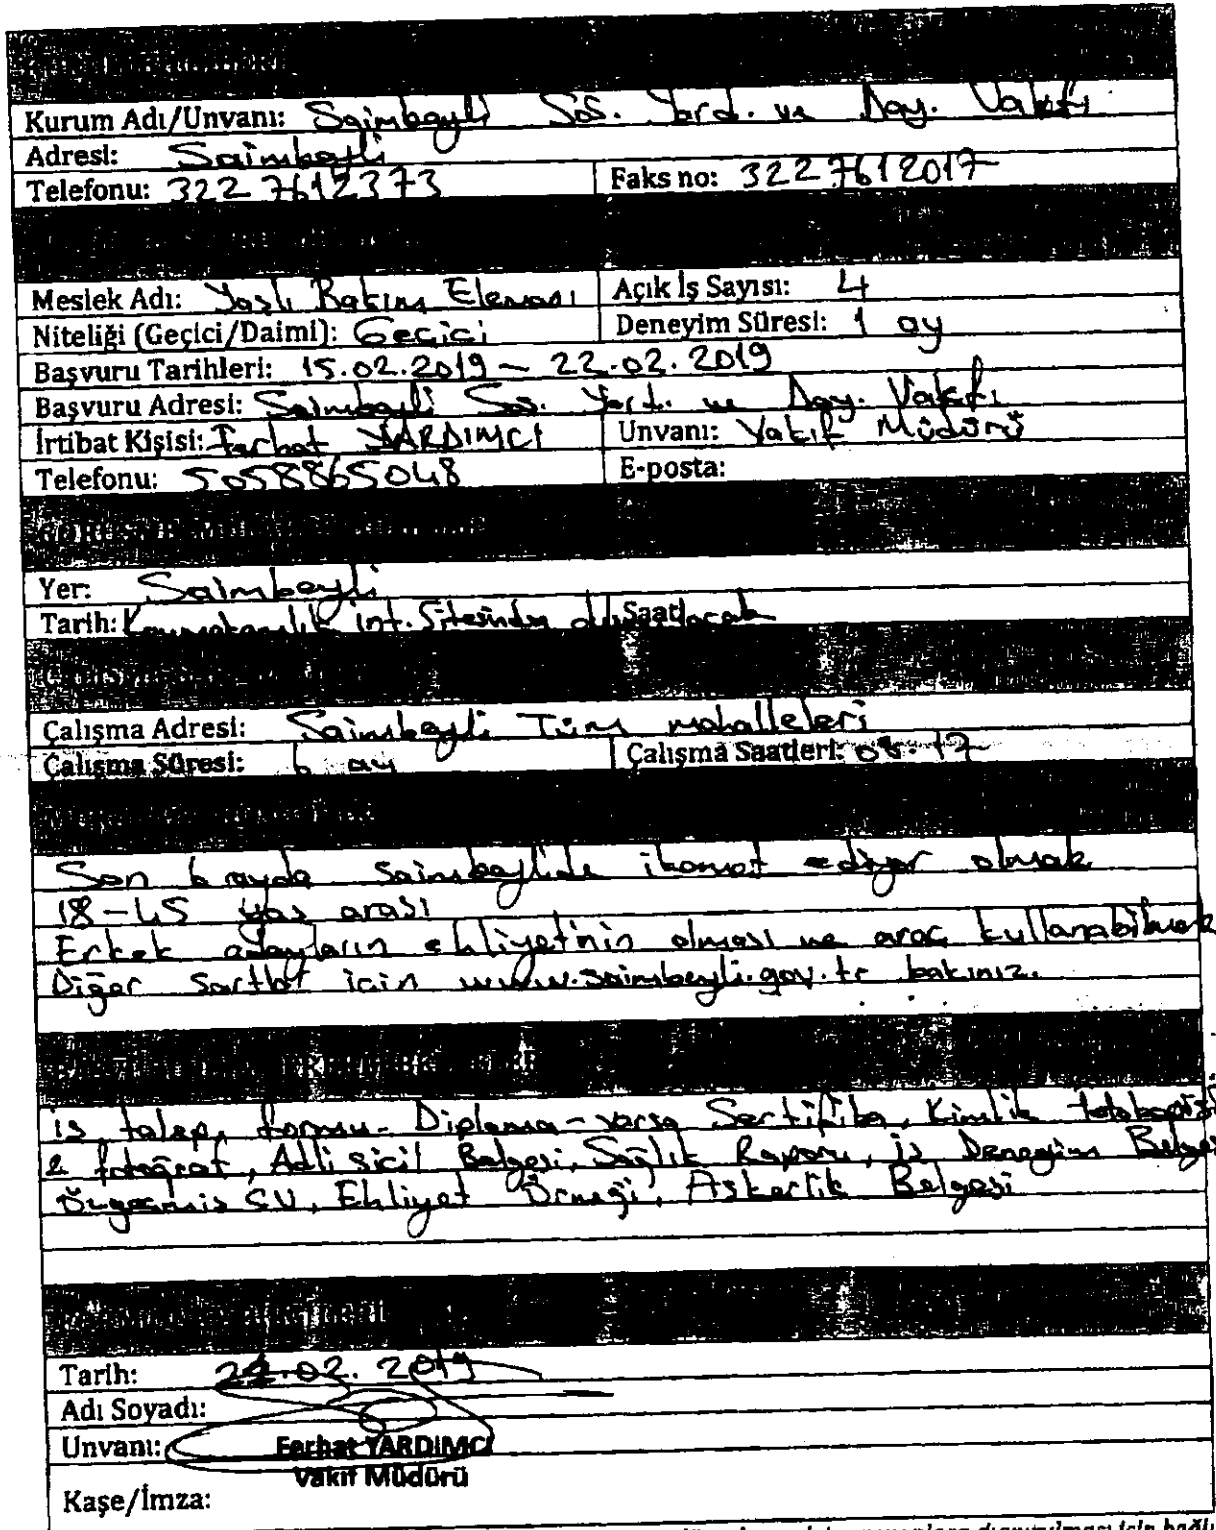 Kurum Adı/Unvanı: Saimbeyli Sos. Yard. ve Day. Vakfı
Adresi: Saimbeyli
Telefonu: 322 7612373 Faks no: 322 7612017
Meslek Adı: Yaşlı Bakım Elemanı Açık İş Sayısı: 4
Niteliği (Geçici/Daimi): Geçici Deneyim Süresi: 1 ay
Başvuru Tarihleri: 15.02.2019 - 22.02.2019
Başvuru Adresi: Saimbeyli Sos. Yard. ve Day. Vakfı
İrtibat Kişisi: Ferhat YARDIMCI Unvanı: Vakıf Müdürü
Telefonu: 5058865048 E-posta:
Yer: Saimbeyli
Tarih: Kaymakamlık int. Sitesinden Saati
Çalışma Adresi: Saimbeyli Tüm mahalleleri
Çalışma Süresi: 6 ay Çalışma Saatleri: 08-17
Son 6 ayda Saimbeylide ikamet ediyor olmak
18-45 yaş arası
Erkek adayların ehliyetinin olması ve araç kullanabilmek
Diğer şartlar için www.saimbeyli.gov.tr bakınız.
iş talep formu - Diploma - varsa Sertifika, Kimlik fotokopisi
2 fotoğraf, Adli sicil Belgesi, Sağlık Raporu, iş Deneyim Belgesi
Özgeçmiş CV, Ehliyet Örneği, Askerlik Belgesi
Tarih: 02.2019
Adı Soyadı:
Unvanı: Ferhat YARDIMCI
Vakıf Müdürü
Kaşe/İmza: